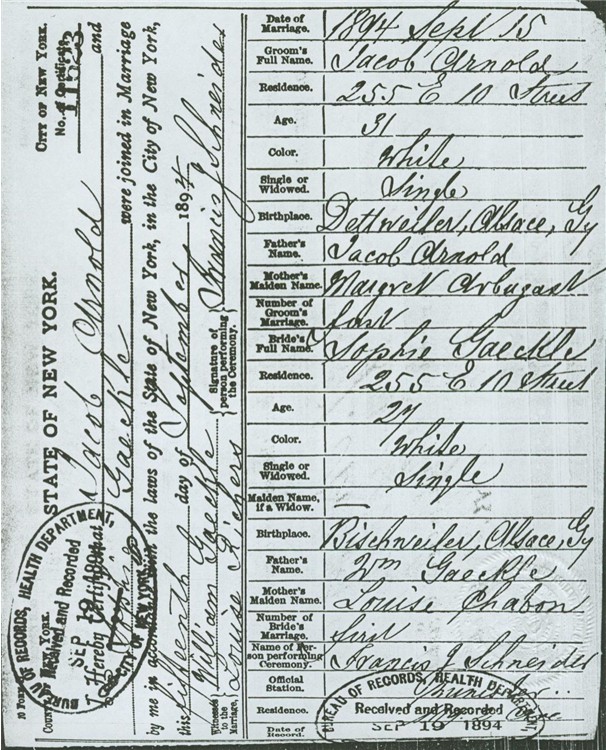 STATE OF NEW YORK.
CITY OF NEW YORK.
No. of Certificate
11523
I Hereby Certify that Jacob Arnold and
Sophie Gaeckle were joined in Marriage
by me in accordance with the laws of the State of New York, in the City of New York,
this fifteenth day of September 1894
Witnesses to the Marriage,
William Gaeckle
Louise
Signature of person performing the Ceremony.
Francis J Schneider
BUREAU OF RECORDS, HEALTH DEPARTMENT,
Received and Recorded
SEP 19 1894
CITY OF NEW YORK
Date of Marriage. 1894 Sept 15
Groom's Full Name. Jacob Arnold
Residence. 255 E 10 Street
Age. 31
Color. White
Single or Widowed. Single
Birthplace. Dettweiler, Alsace, Gy
Father's Name. Jacob Arnold
Mother's Maiden Name. Margret Arbugast
Number of Groom's Marriage. first
Bride's Full Name. Sophie Gaeckle
Residence. 255 E 10 Street
Age. 27
Color. White
Single or Widowed. Single
Maiden Name, if a Widow. —
Birthplace. Bischweiler, Alsace, Gy
Father's Name. Wm Gaeckle
Mother's Maiden Name. Louise Chabon
Number of Bride's Marriage. first
Name of Person performing Ceremony. Francis J Schneider
Official Station.
Residence.
Date of Record.
BUREAU OF RECORDS, HEALTH DEPARTMENT,
Received and Recorded
SEP 19 1894